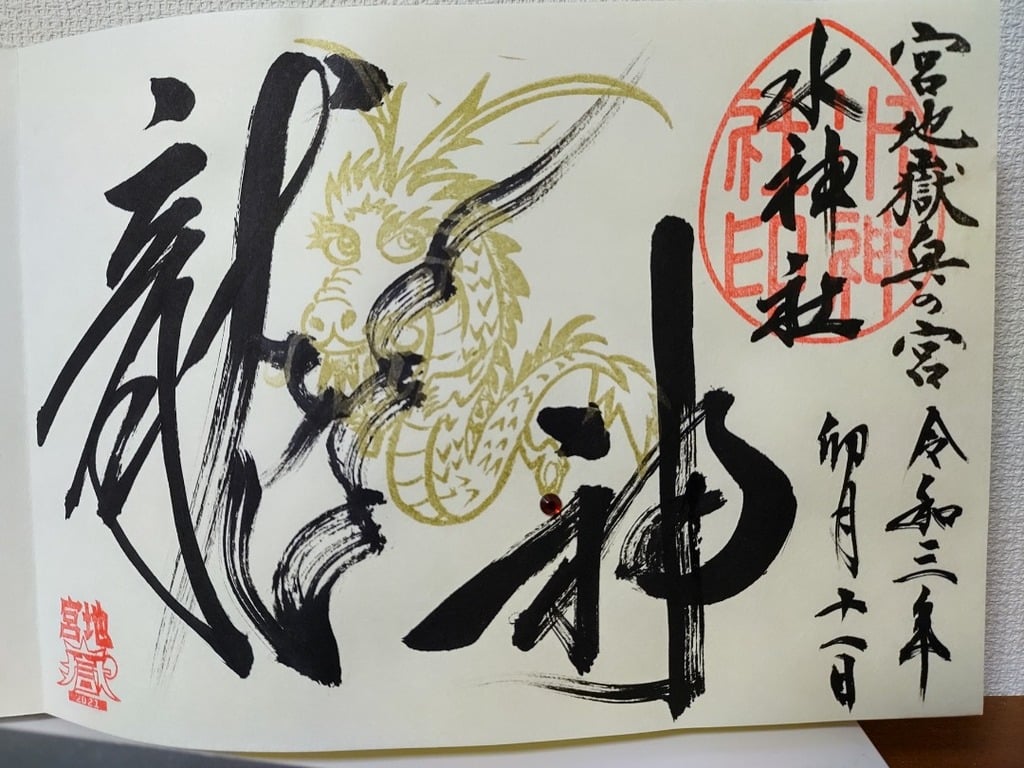 宮地嶽奥の宮 令和三年
水神社 卯月十八日
水神
社印
龍神
宮地嶽
2021